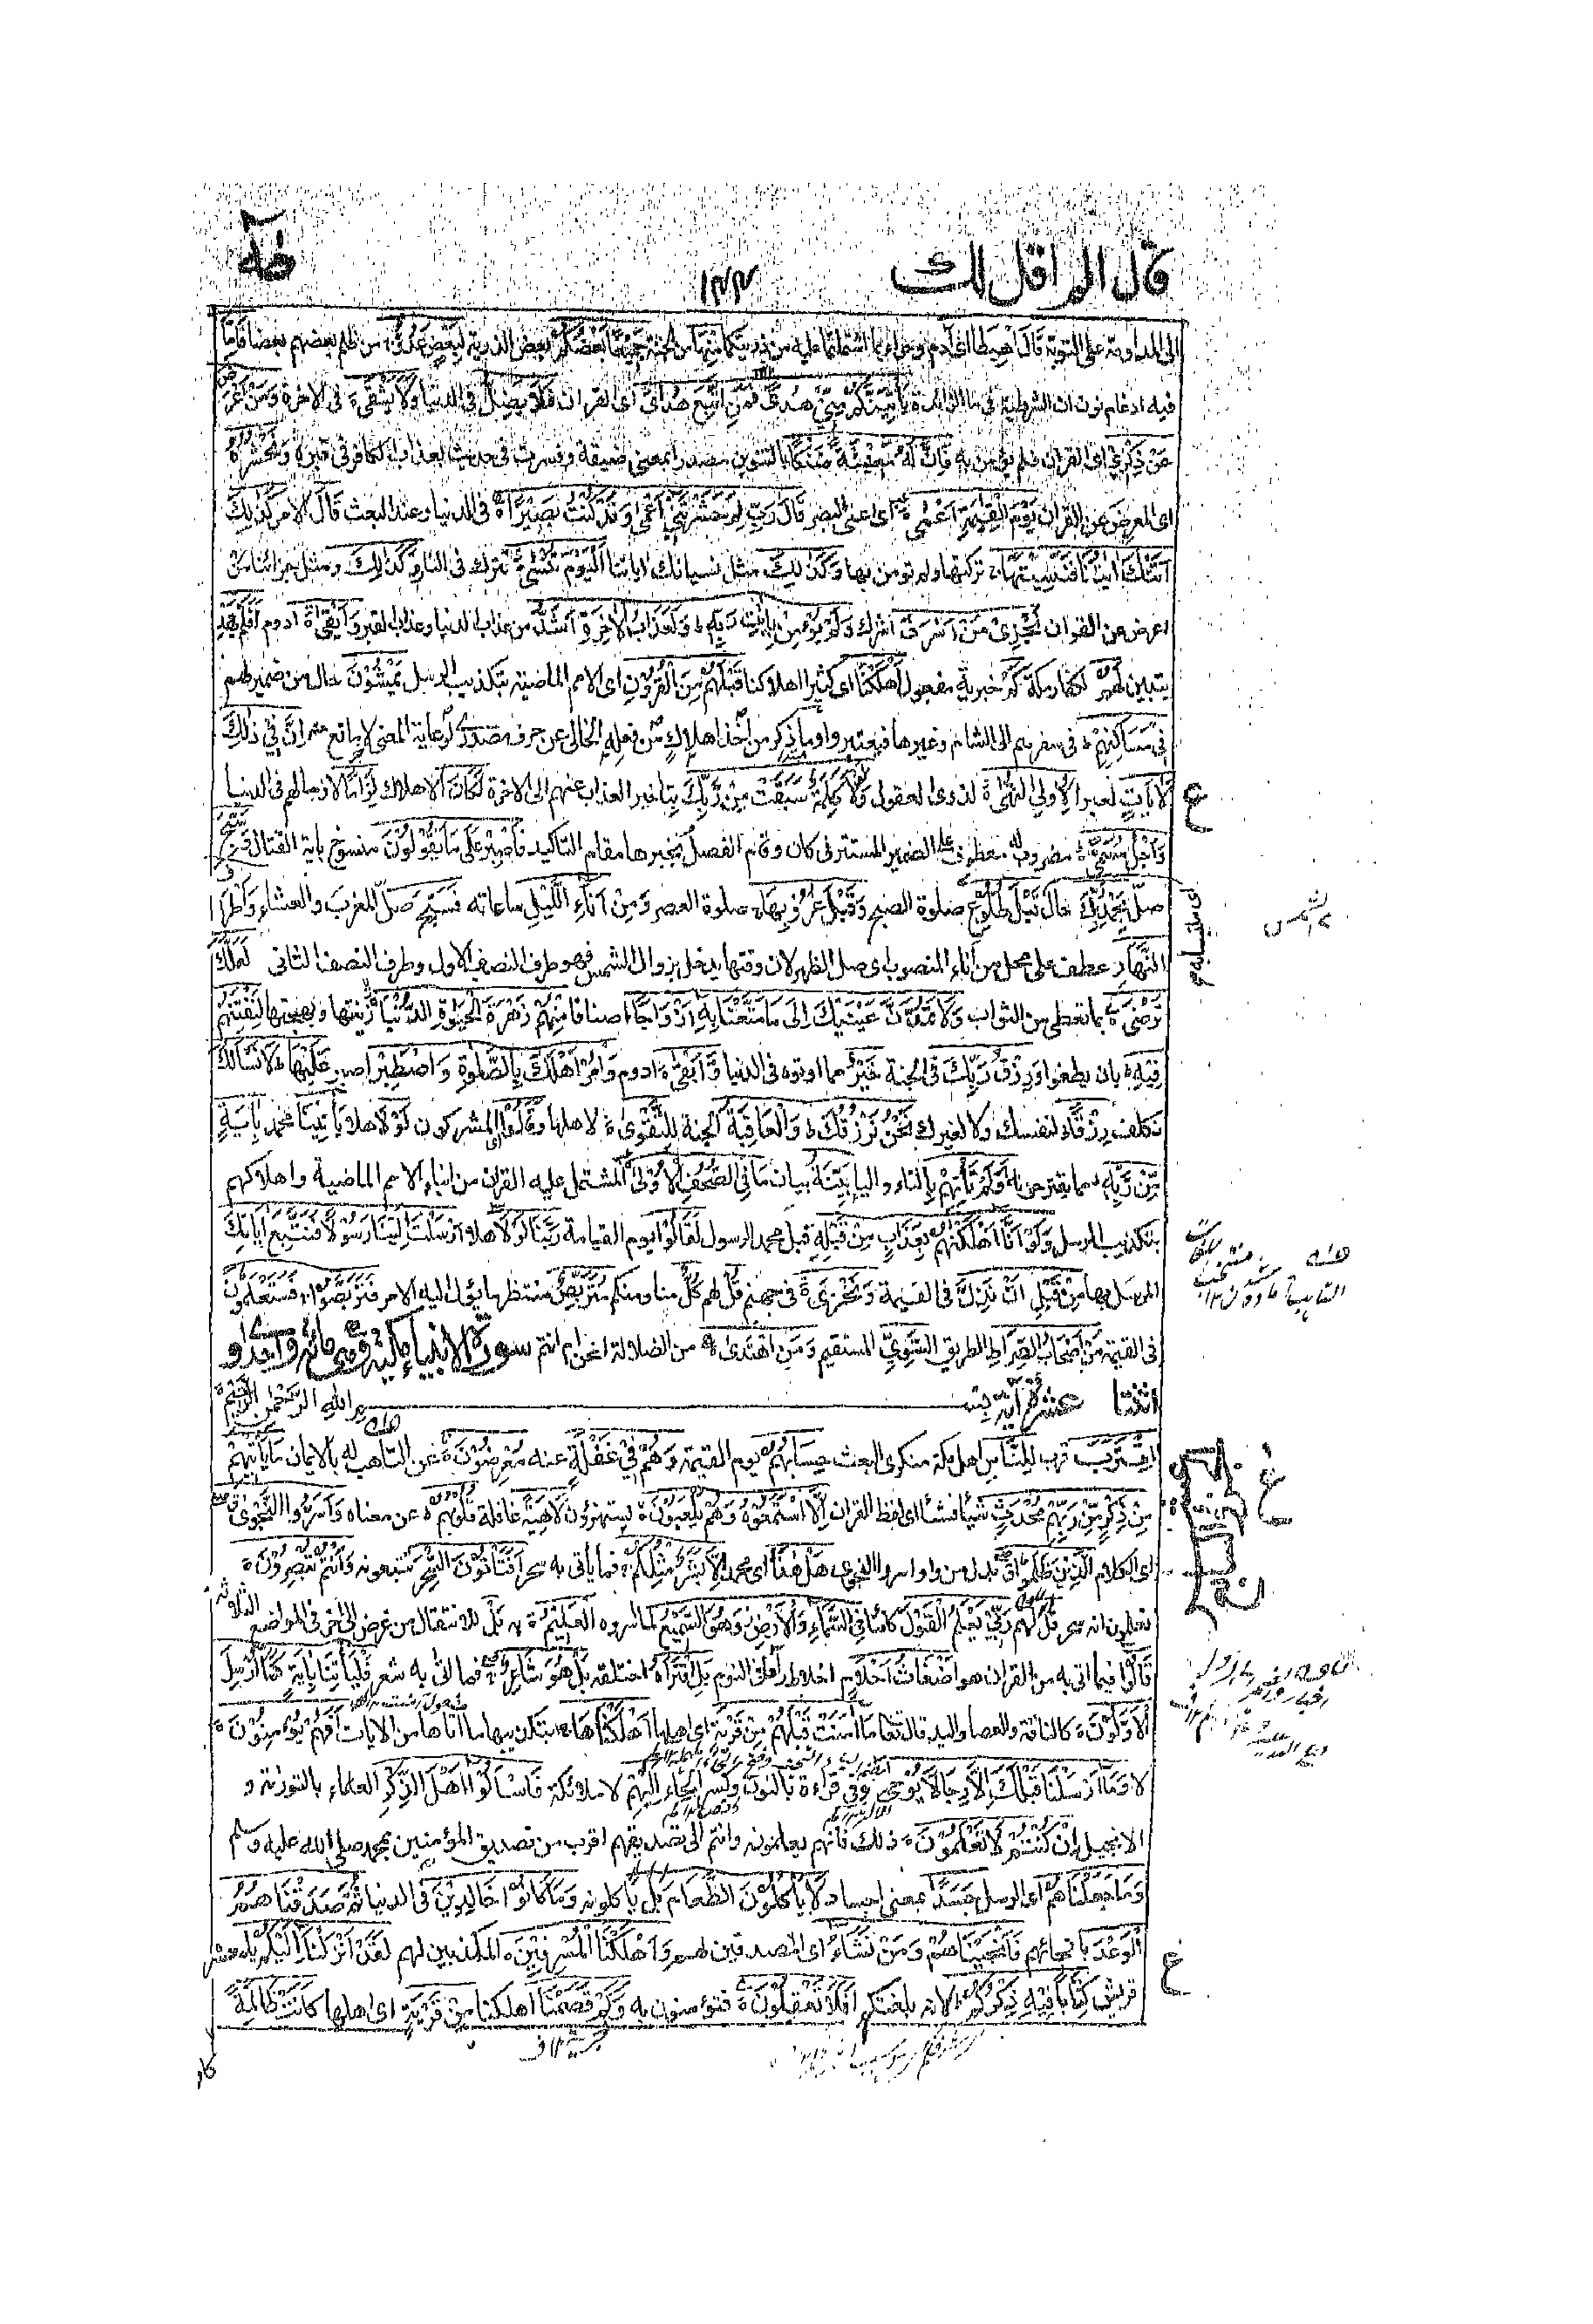 قال الم اقل لك
١٢٢
طه
الى المداومة على التوبة قَالَ اهْبِطَا اى آدم وحواء بما اشتملتما عليه من ذريتكما مِنْهَا من الجنة جَمِيْعًا بَعْضُكُمْ بعض الذرية لِبَعْضٍ عَدُوٌّ من ظلم بعضهم بعضا فَاِمَّا
فيه ادغام نون ان الشرطية فى ما الزائدة يَاْتِيَنَّكُمْ مِنِّيْ هُدًى فَمَنِ اتَّبَعَ هُدَايَ اى القران فَلَا يَضِلُّ فى الدنيا وَلَا يَشْقٰى فى الاخرة وَمَنْ اَعْرَضَ
عَنْ ذِكْرِيْ اى القران فلم يؤمن به فَاِنَّ لَهُ مَعِيْشَةً ضَنْكًا بالتنوين مصدر بمعنى ضيقة وفسرت فى حديث بعذاب الكافر فى قبره وَنَحْشُرُهُ
اى المعرض عن القران يَوْمَ الْقِيٰمَةِ اَعْمٰى اى اعمى البصر قَالَ رَبِّ لِمَ حَشَرْتَنِيْ اَعْمٰى وَقَدْ كُنْتُ بَصِيْرًا فى الدنيا وعند البعث قَالَ الامر كَذٰلِكَ
اَتَتْكَ اٰيٰتُنَا فَنَسِيْتَهَا تركتها ولم تؤمن بها وَكَذٰلِكَ مثل نسيانك اياتنا الْيَوْمَ تُنْسٰى تترك فى النار وَكَذٰلِكَ ومثل جزائنا من
اعرض عن القران نَجْزِيْ مَنْ اَسْرَفَ اشرك وَلَمْ يُؤْمِنْ بِاٰيٰتِ رَبِّهٖ وَلَعَذَابُ الْاٰخِرَةِ اَشَدُّ من عذاب الدنيا وعذاب القبر وَاَبْقٰى ادوم اَفَلَمْ يَهْدِ
يتبين لَهُمْ لكفار مكة كَمْ خبرية مفعول اَهْلَكْنَا اى كثيرا اهلاكنا قَبْلَهُمْ مِنَ الْقُرُوْنِ اى الامم الماضية بتكذيب الرسل يَمْشُوْنَ حال من ضمير لهم
فِيْ مَسَاكِنِهِمْ فى سفرهم الى الشام وغيرها فيعتبروا وما ذكر من اخذ اهلاك من فعله الخالى عن حرف مصدرى لرعاية المعنى لا مانع منه اِنَّ فِيْ ذٰلِكَ
لَاٰيٰتٍ لعبر لِاُولِي النُّهٰى لذوى العقول وَلَوْلَا كَلِمَةٌ سَبَقَتْ مِنْ رَبِّكَ بتاخير العذاب عنهم الى الاخرة لَكَانَ الاهلاك لِزَامًا لازما لهم فى الدنيا
وَاَجَلٌ مُسَمًّى مضروب لهم معطوف على الضمير المستتر فى كان وقام الفصل بخبرها مقام التاكيد فَاصْبِرْ عَلٰى مَا يَقُوْلُوْنَ منسوخ باية القتال وَسَبِّحْ
صل بِحَمْدِ رَبِّكَ حال قَبْلَ طُلُوْعِ صلوة الصبح وَقَبْلَ غُرُوْبِهَا صلوة العصر وَمِنْ اٰنَاءِ اللَّيْلِ ساعاته فَسَبِّحْ صل المغرب والعشاء وَاَطْرَافَ
النَّهَارِ عطف على محل من اناء المنصوب اى صل الظهر لان وقتها يدخل بزوال الشمس فهو طرف النصف الاول وطرف النصف الثانى لَعَلَّكَ
تَرْضٰى بما تعطى من الثواب وَلَا تَمُدَّنَّ عَيْنَيْكَ اِلٰى مَا مَتَّعْنَا بِهٖ اَزْوَاجًا اصنافا مِنْهُمْ زَهْرَةَ الْحَيٰوةِ الدُّنْيَا زينتها وبهجتها لِنَفْتِنَهُمْ
فِيْهِ بان يطغوا وَرِزْقُ رَبِّكَ فى الجنة خَيْرٌ مما اوتوه فى الدنيا وَاَبْقٰى ادوم وَاْمُرْ اَهْلَكَ بِالصَّلٰوةِ وَاصْطَبِرْ اصبر عَلَيْهَا لَا نَسْاَلُكَ
نكلفك رِزْقًا لنفسك ولا لغيرك نَحْنُ نَرْزُقُكَ وَالْعَاقِبَةُ الجنة لِلتَّقْوٰى لاهلها وَقَالُوْا اى المشركون لَوْلَا هلا يَاْتِيْنَا محمد بِاٰيَةٍ
مِنْ رَبِّهٖ مما يقترحونه اَوَلَمْ تَاْتِهِمْ بالتاء والياء بَيِّنَةُ بيان مَا فِي الصُّحُفِ الْاُوْلٰى المشتمل عليه القران من انباء الامم الماضية واهلاكهم
بتكذيب الرسل وَلَوْ اَنَّا اَهْلَكْنٰهُمْ بِعَذَابٍ مِنْ قَبْلِهٖ قبل محمد الرسول لَقَالُوْا يوم القيامة رَبَّنَا لَوْلَا هلا اَرْسَلْتَ اِلَيْنَا رَسُوْلًا فَنَتَّبِعَ اٰيَاتِكَ
المرسل بها مِنْ قَبْلِ اَنْ نَذِلَّ فى القيمة وَنَخْزٰى فى جهنم قُلْ لهم كُلٌّ منا ومنكم مُتَرَبِّصٌ منتظر ما يؤل اليه الامر فَتَرَبَّصُوْا فَسَتَعْلَمُوْنَ
فى القيمة مَنْ اَصْحَابُ الصِّرَاطِ الطريق السَّوِيِّ المستقيم وَمَنِ اهْتَدٰى من الضلالة انحن ام انتم سورة الانبياء مكية وهى مائة واحدى او
اثنتا عشرة آية بسم الله الرحمن الرحيم
اِقْتَرَبَ قرب لِلنَّاسِ اهل مكة منكرى البعث حِسَابُهُمْ يوم القيمة وَهُمْ فِيْ غَفْلَةٍ عنه مُعْرِضُوْنَ عن التاهب له بالايمان مَا يَاْتِيْهِمْ
مِنْ ذِكْرٍ مِنْ رَبِّهِمْ مُحْدَثٍ شيئا فشيئا اى لفظ القران اِلَّا اسْتَمَعُوْهُ وَهُمْ يَلْعَبُوْنَ يستهزؤن لَاهِيَةً غافلة قُلُوْبُهُمْ عن معناه وَاَسَرُّوا النَّجْوٰى
اى الكلام الَّذِيْنَ ظَلَمُوْا بدل من واو اسروا النجوى هَلْ هٰذَا اى محمد اِلَّا بَشَرٌ مِثْلُكُمْ فما يأتى به سحر اَفَتَاْتُوْنَ السِّحْرَ تتبعونه وَاَنْتُمْ تُبْصِرُوْنَ
تعلمون انه سحر قُلْ لهم رَبِّيْ يَعْلَمُ الْقَوْلَ كائنا فِي السَّمَاءِ وَالْاَرْضِ وَهُوَ السَّمِيْعُ لما اسروه الْعَلِيْمُ به بَلْ للانتقال من غرض الى اخر فى المواضع الثلاثة
قَالُوْا فيما اتى به من القران هو اَضْغَاثُ اَحْلَامٍ اخلاط راها فى النوم بَلِ افْتَرَاهُ اختلقه بَلْ هُوَ شَاعِرٌ فما اتى به شعر فَلْيَاْتِنَا بِاٰيَةٍ كَمَا اُرْسِلَ
الْاَوَّلُوْنَ كالناقة والعصا واليد قال تعالى مَا اٰمَنَتْ قَبْلَهُمْ مِنْ قَرْيَةٍ اى اهلها اَهْلَكْنٰهَا بتكذيبها ما اتاها من الايات اَفَهُمْ يُؤْمِنُوْنَ
لا وَمَا اَرْسَلْنَا قَبْلَكَ اِلَّا رِجَالًا يُوْحٰى وفى قراءة بالنون وكسر الحاء اِلَيْهِمْ لا ملائكة فَاسْاَلُوْا اَهْلَ الذِّكْرِ العلماء بالتورٰية و
الانجيل اِنْ كُنْتُمْ لَا تَعْلَمُوْنَ ذلك فانهم يعلمونه وانتم الى تصديقهم اقرب من تصديق المؤمنين بمحمد صلى الله عليه وسلم
وَمَا جَعَلْنَاهُمْ اى الرسل جَسَدًا بمعنى اجساد لَا يَاْكُلُوْنَ الطَّعَامَ بل ياكلونه وَمَا كَانُوْا خَالِدِيْنَ فى الدنيا ثُمَّ صَدَقْنَاهُمُ
الْوَعْدَ بانجائهم فَاَنْجَيْنَاهُمْ وَمَنْ نَشَاءُ اى المصدقين لهم وَاَهْلَكْنَا الْمُسْرِفِيْنَ المكذبين لهم لَقَدْ اَنْزَلْنَا اِلَيْكُمْ يا معشر
قريش كِتَابًا فِيْهِ ذِكْرُكُمْ لانه بلغتكم اَفَلَا تَعْقِلُوْنَ فتؤمنون به وَكَمْ قَصَمْنَا اهلكنا مِنْ قَرْيَةٍ اى اهلها كَانَتْ ظَالِمَةً